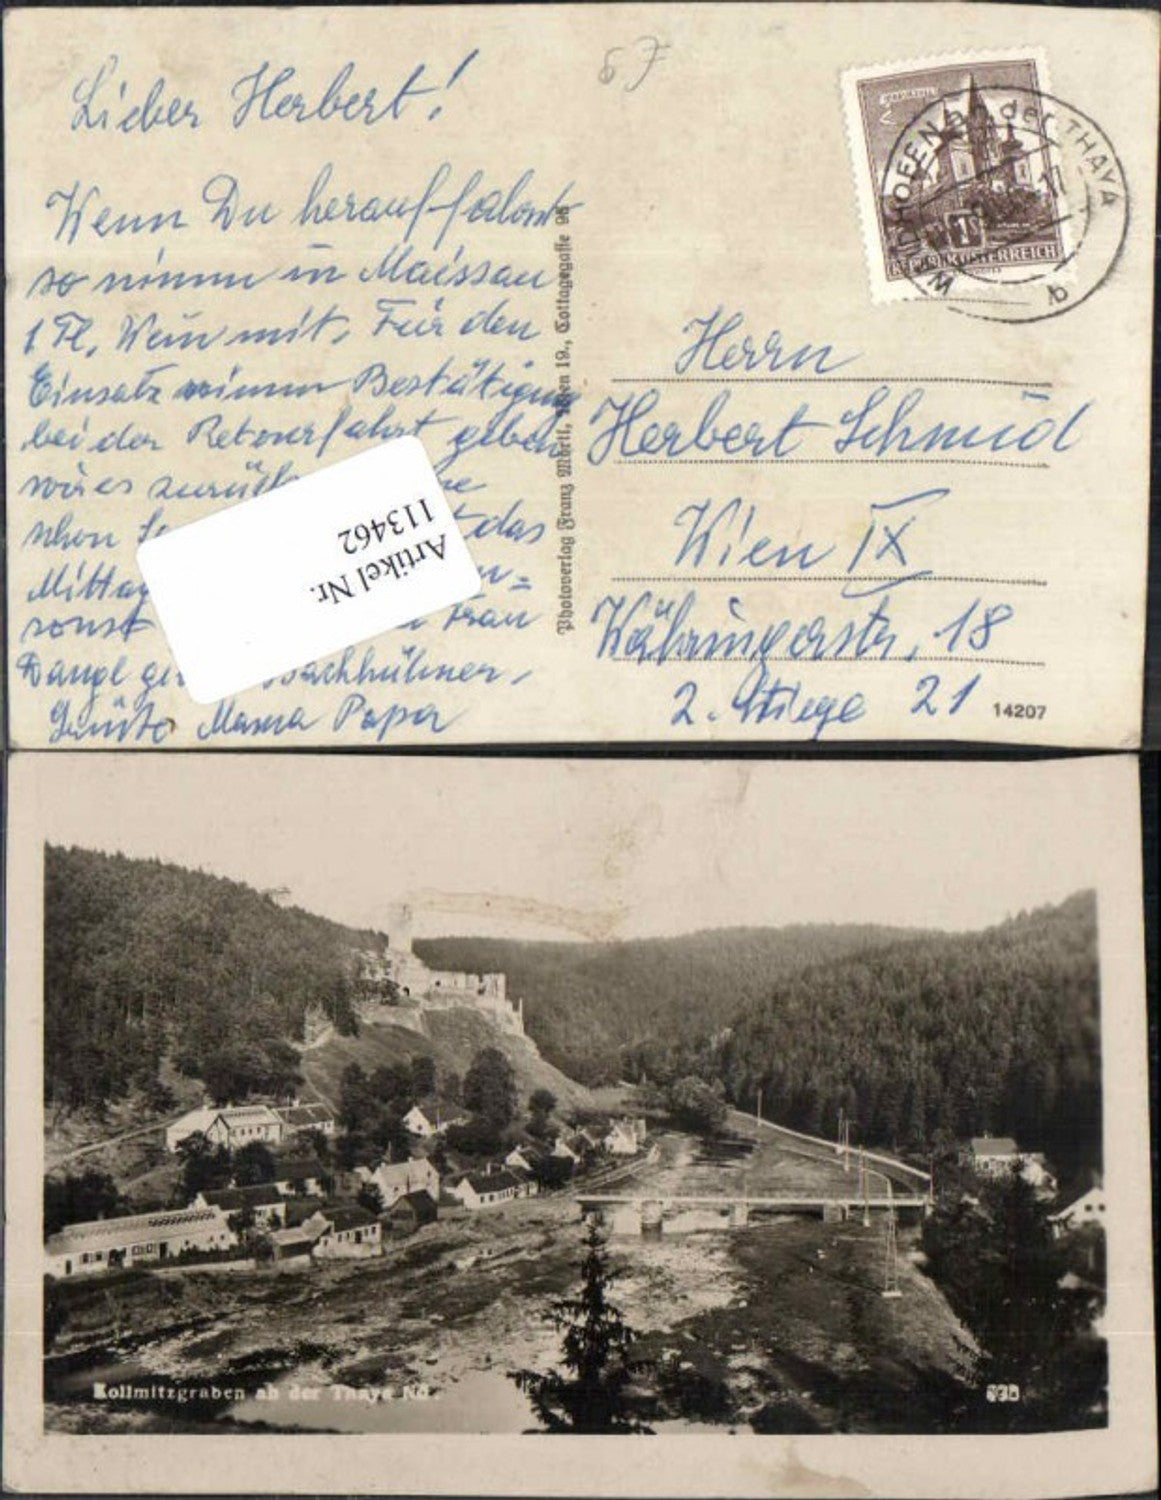 Lieber Herbert!
Wenn Du herauffahrst
so nimm in Maissau
1 Fl. Wein mit. Für den
Einsatz nimm Bestätigung
bei der Retourfahrt geben
wir es zurück
schon das
Mittag
sonst Frau
Dangl Backhühner,
Grüße Mama Papa
Photoverlag Franz Mörtl, Wien 19., Cottagegasse 96
Artikel Nr.
113462
67
WAIDHOFEN an der THAYA
b
REPUBLIK ÖSTERREICH
Herrn
Herbert Schmid
Wien IX
Währingerstr. 18
2. Stiege 21
14207
Kollmitzgraben ab der Thaya Nd.